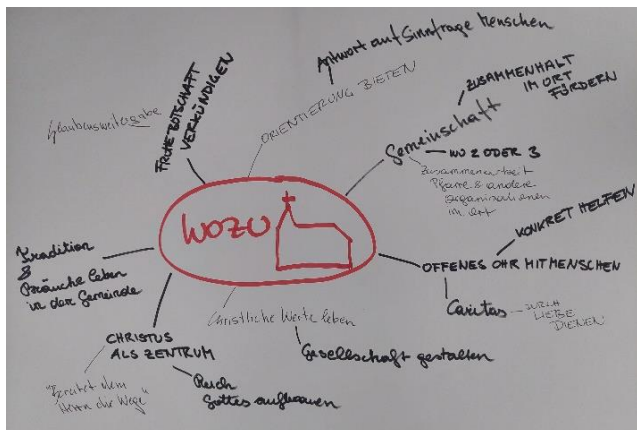 WOZU
Antwort auf Sinnfrage Menschen
ORIENTIERUNG BIETEN
FROHE BOTSCHAFT
VERKÜNDIGEN
Glaubensweitergabe
Gemeinschaft
ZUSAMMENHALT
IM ORT
FÖRDERN
WO 2 ODER 3
Zusammenarbeit
Pfarre & andere
Organisationen
im Ort
OFFENES OHR MITMENSCHEN
KONKRET HELFEN
Caritas
DURCH
LIEBE
DIENEN
Christliche Werte leben
Gesellschaft gestalten
CHRISTUS
ALS ZENTRUM
Reich
Gottes aufbauen
"Bereitet dem
Herrn die Wege"
Tradition
&
Bräuche leben
in der Gemeinde